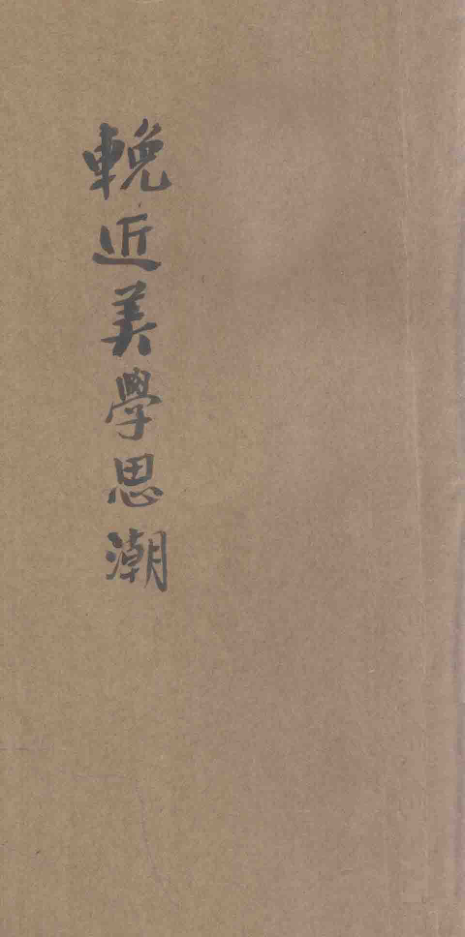 輓近美學思潮